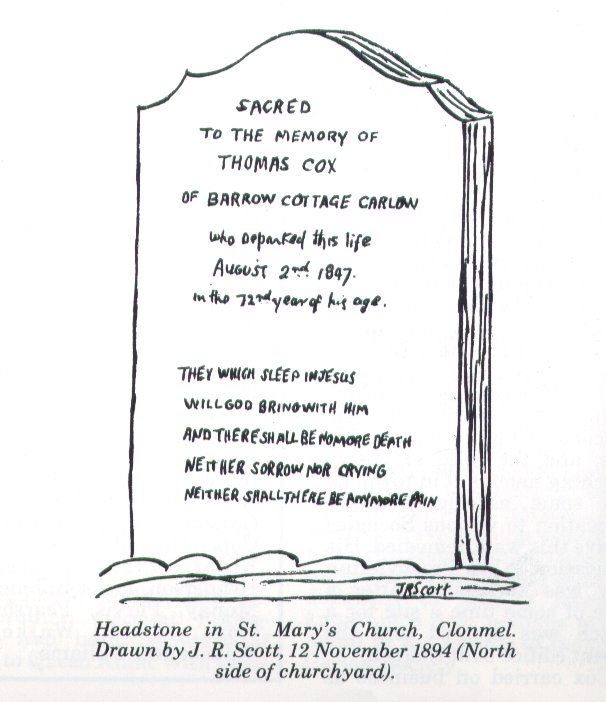 SACRED
TO THE MEMORY OF
THOMAS COX
OF BARROW COTTAGE CARLOW
who Departed this life
AUGUST 2nd 1847.
in the 72nd year of his age.
THEY WHICH SLEEP IN JESUS
WILL GOD BRING WITH HIM
AND THERE SHALL BE NO MORE DEATH
NEITHER SORROW NOR CRYING
NEITHER SHALL THERE BE ANY MORE PAIN
J R Scott.
Headstone in St. Mary's Church, Clonmel.
Drawn by J. R. Scott, 12 November 1894 (North
side of churchyard).